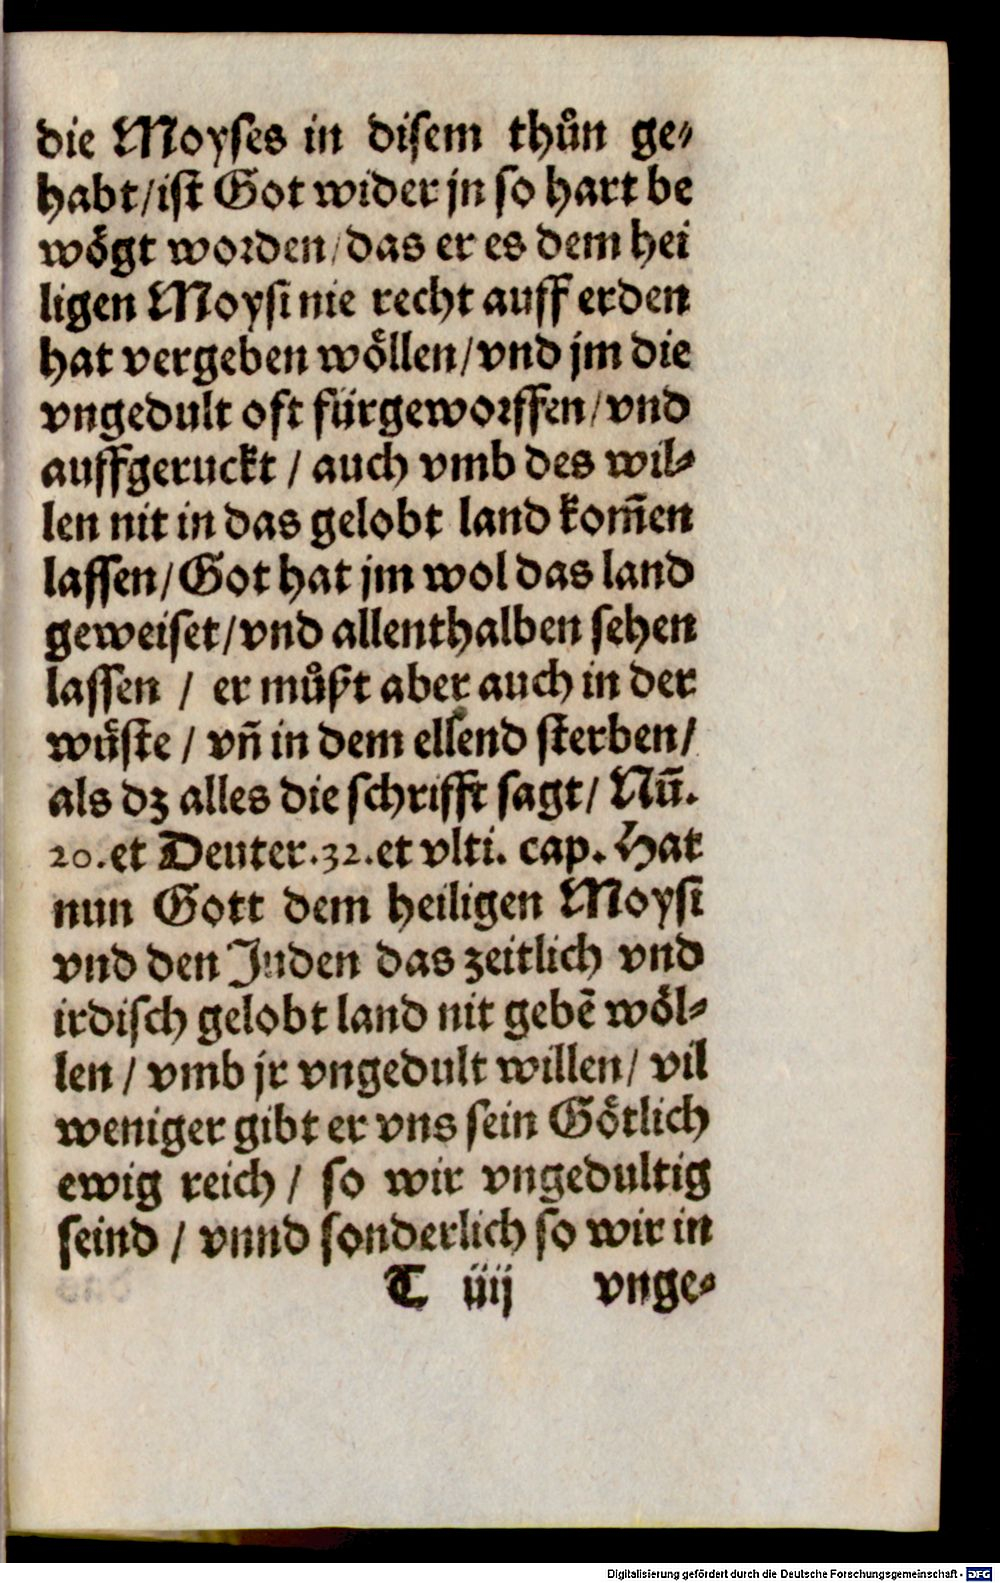 die Moyses in disem thůn ge-
habt/ist Got wider jn so hart be
wögt worden/das er es dem hei
ligen Moysi nie recht auff erden
hat vergeben wöllen/vnd jm die
vngedult oft fürgeworffen/vnd
auffgeruckt / auch vmb des wil-
len nit in das gelobt land kom̄en
lassen/Got hat jm wol das land
geweiset/vnd allenthalben sehen
lassen / er můßt aber auch in der
wüste / vn̄ in dem ellend sterben/
als dz alles die schrifft sagt/ Nū.
20.et Deuter.32.et vlti. cap. Hat
nun Gott dem heiligen Moysi
vnd den Juden das zeitlich vnd
irdisch gelobt land nit gebē wöl-
len / vmb jr vngedult willen/ vil
weniger gibt er vns sein Götlich
ewig reich / so wir vngedultig
seind / vnnd sonderlich so wir in
T iiij vnge-
Digitalisierung gefördert durch die Deutsche Forschungsgemeinschaft - DFG